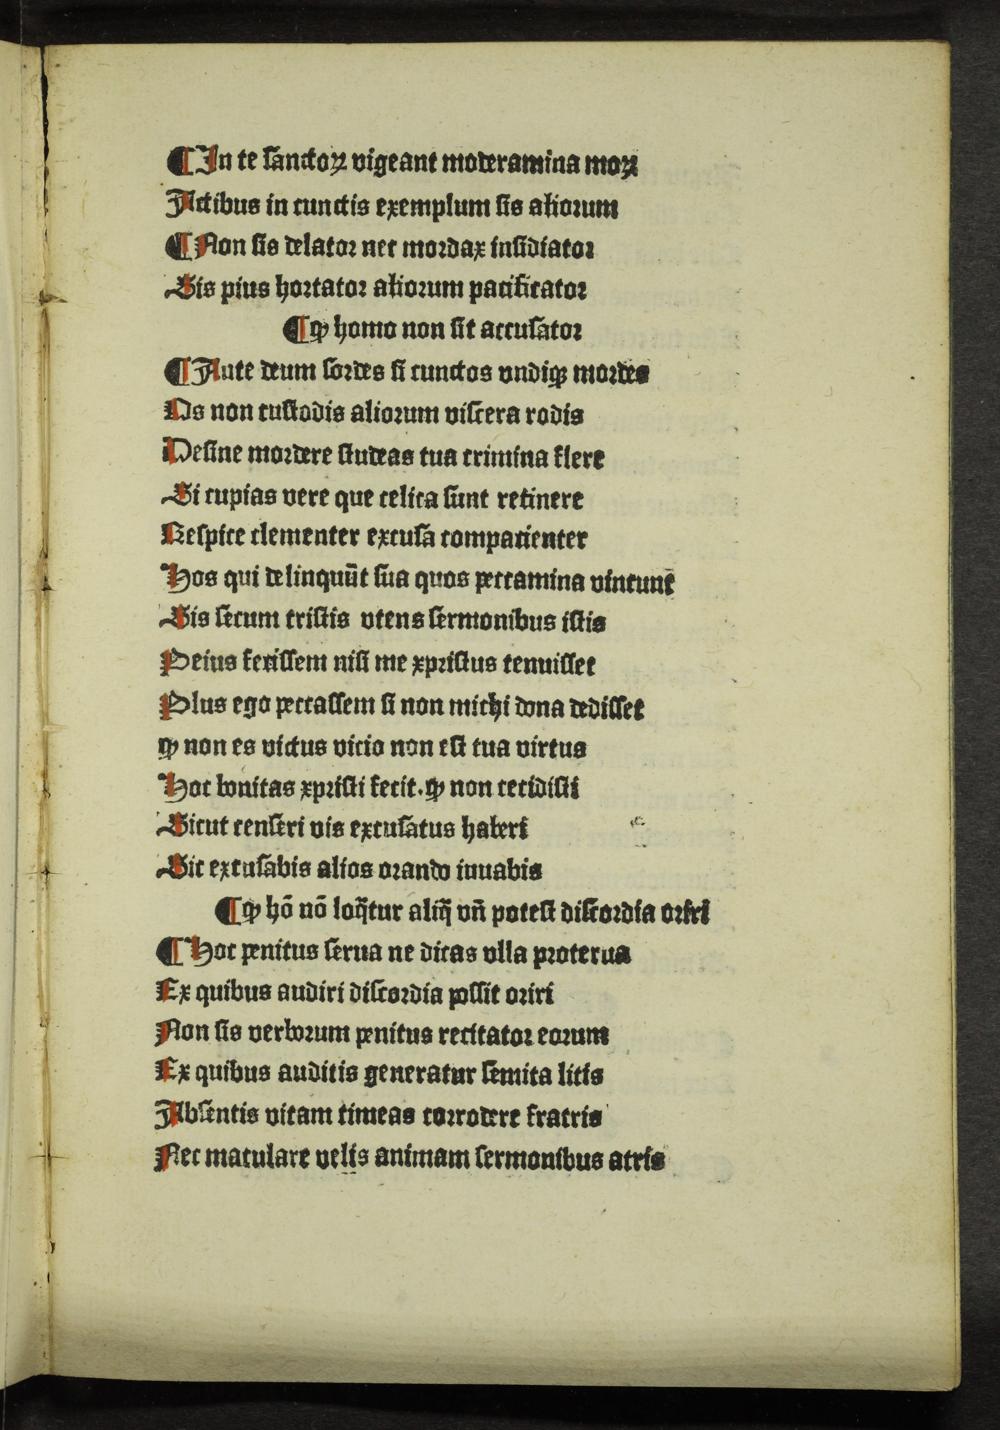 ¶ In te sanctoꝝ vigeant moderamina moꝝ
Actibus in cunctis exemplum sis aliorum
¶ Non sis delator nec mordax insidiator
Sis pius hortator aliorum pacificator
¶ ꝙ homo non sit accusator
¶ Ante deum sordes si cunctos vndiqꝫ mordes
Os non custodis aliorum viscera rodis
Desine mordere studeas tua crimina flere
Si cupias vere que celica sunt retinere
Respice clementer excusa compacienter
Hos qui delinquūt sua quos peccamina vincunt
Sis secum tristis vtens sermonibus istis
Peius fecissem nisi me xpristus tenuisset
Plus ego peccassem si non michi dona dedisset
ꝙ non es victus vicio non est tua virtus
Hoc bonitas xpristi fecit. ꝙ non cecidisti
Sicut censeri vis excusatus haberi
Sic excusabis alios orando iuuabis
¶ ꝙ hō nō loq̄tur aliq̄ vn̄ potest discordia oriri
¶ Hoc penitus serua ne dicas vlla proterua
Ex quibus audiri discordia possit oriri
Non sis verborum penitus recitator eorum
Ex quibus auditis generatur semita litis
Absentis vitam timeas corrodere fratris
Nec maculare velis animam sermonibus atris